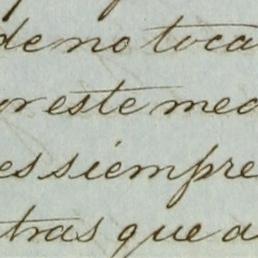 de no toca
or este med
es siempre
tras que a